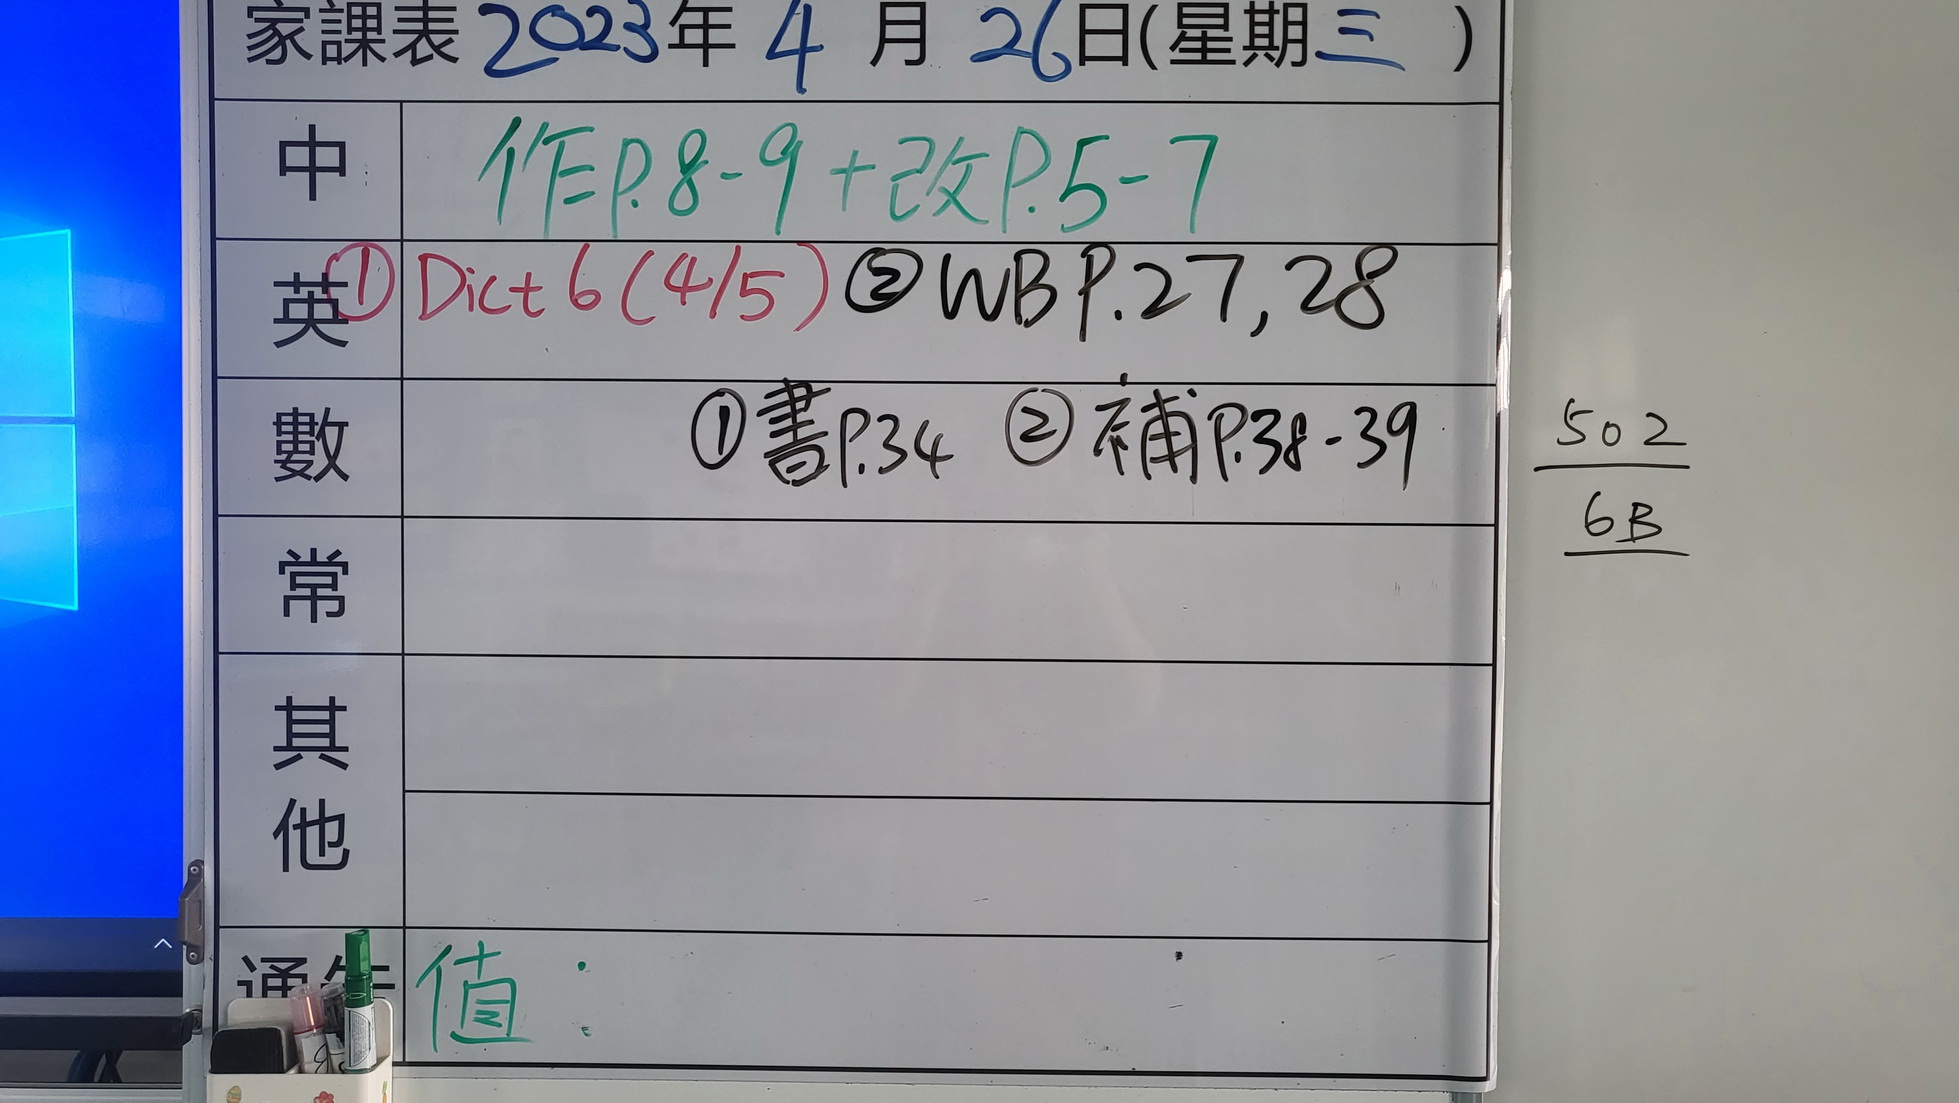 家課表 2023年 4 月 26日(星期三 )
中 作P.8-9+改P.5-7
英 ①Dict 6(4/5) ②WB P.27,28
數 ①書P.34 ②補P.38-39
502
6B
常
其他
通告 值: